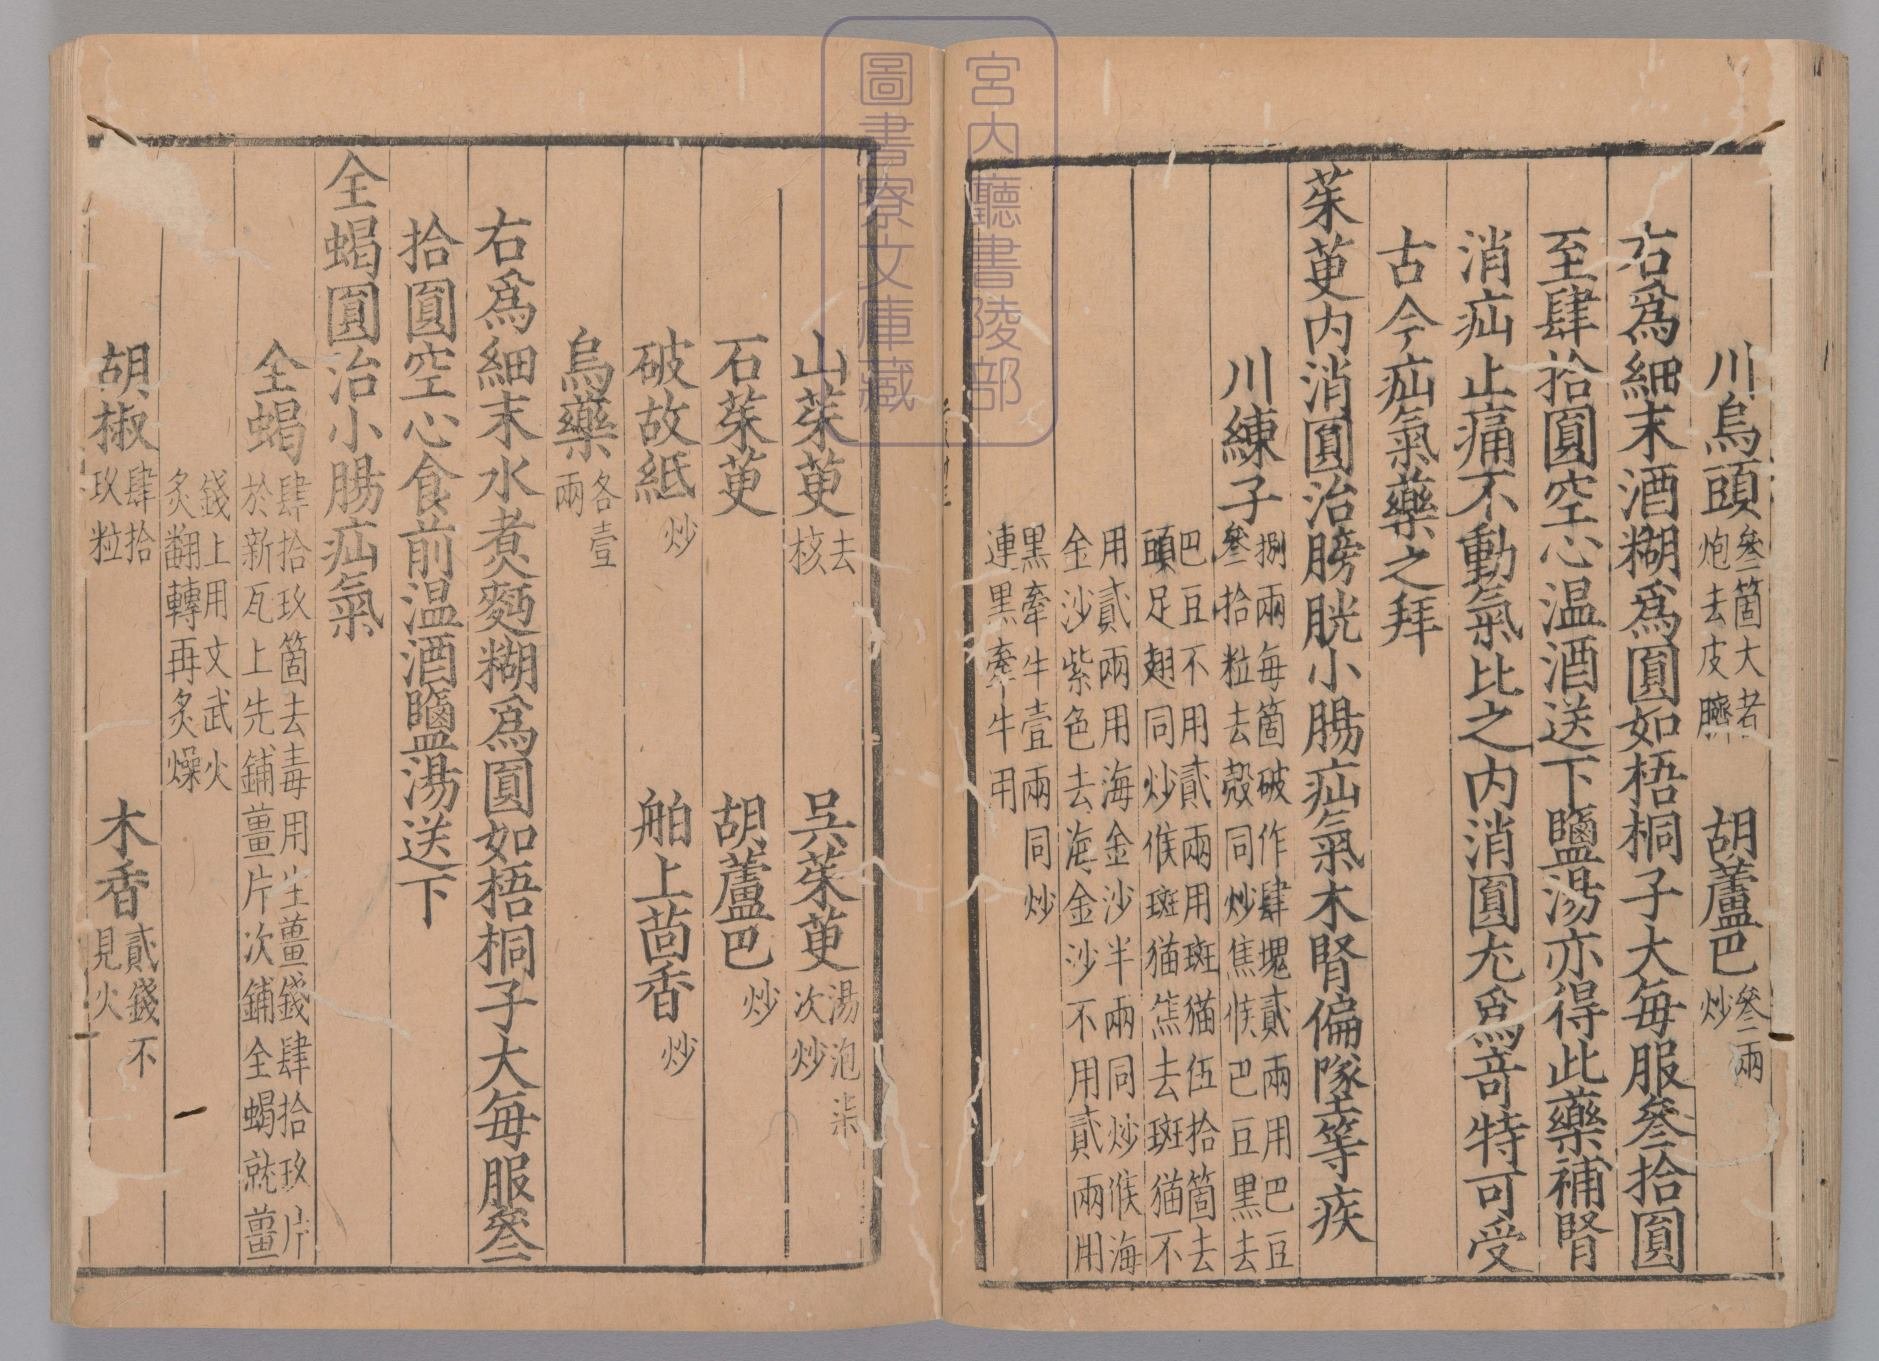 川烏頭叄箇大者炮去皮臍 胡蘆巴叄兩炒
右爲細末酒糊爲圓如梧桐子大每服叄拾圓
至肆拾圓空心温酒送下鹽湯亦得此藥補腎
消疝止痛不動氣比之内消圓尤爲奇特可受
古今疝氣藥之拜
茱萸内消圓治膀胱小腸疝氣木腎偏墜等疾
川練子捌兩每箇破作肆塊貳兩用巴豆
叄拾粒去殼同炒焦候巴豆黑去
巴豆不用貳兩用斑猫伍拾箇去
頭足翅同炒候斑猫焦去斑猫不
用貳兩用海金沙半兩同炒候海
金沙紫色去海金沙不用貳兩用
黑牽牛壹兩同炒
連黑牽牛用
山茱萸去核 吳茱萸湯泡柒次炒
石茱萸 胡蘆巴炒
破故紙炒 舶上茴香炒
烏藥各壹兩
右爲細末水煮麪糊爲圓如梧桐子大每服叄
拾圓空心食前温酒鹽湯送下
全蝎圓治小腸疝氣
全蝎肆拾玖箇去毒用生薑錢肆拾玖片
於新瓦上先鋪薑片次鋪全蝎就薑
錢上用文武火
炙翻轉再炙燥
胡椒肆拾玖粒 木香貳錢不見火
宮内廳書陵部
圖書寮文庫藏